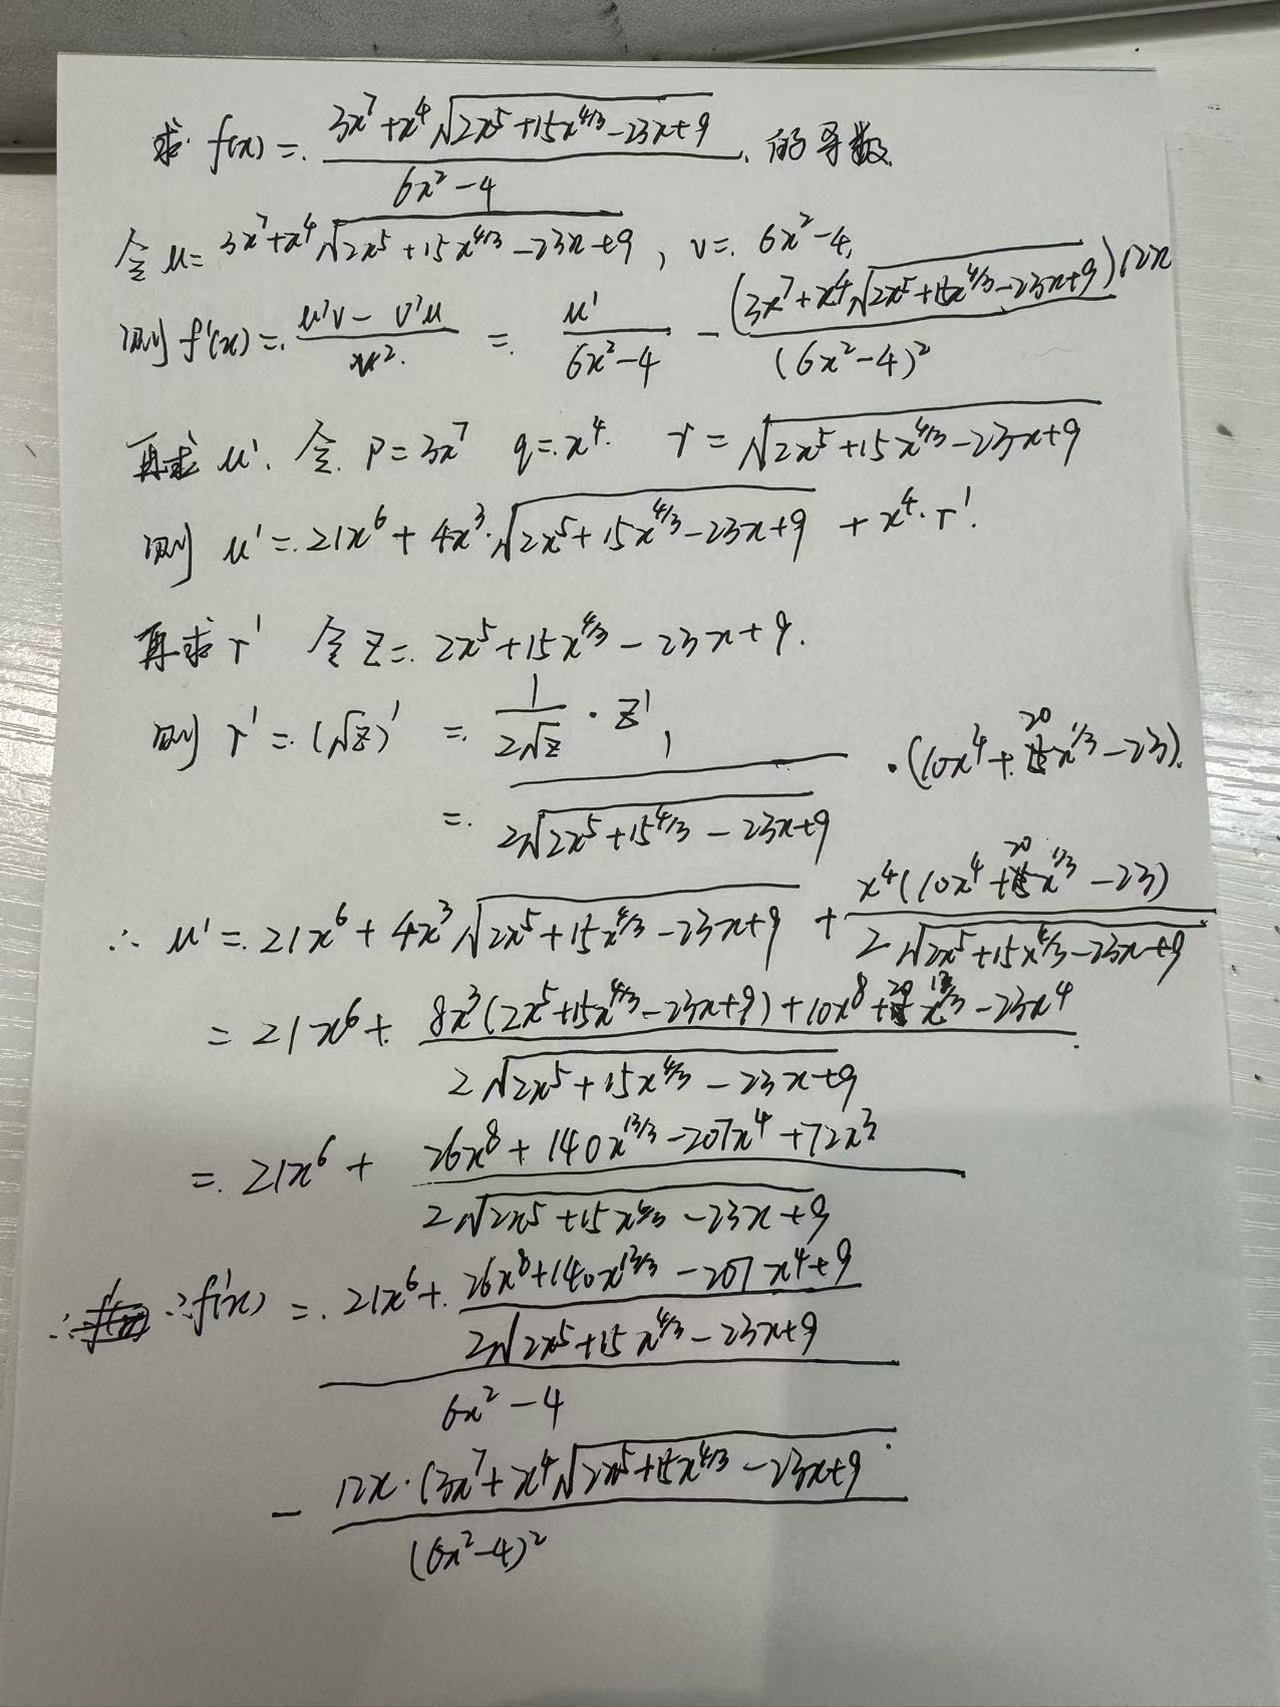 求 f(x) = (3x^7+x^4√(2x^5+15x^{4/3}-23x+9))/(6x^2-4) 的导数.
令 u = 3x^7+x^4√(2x^5+15x^{4/3}-23x+9), v = 6x^2-4,
则 f'(x) = (u'v - v'u)/v^2 = u'/(6x^2-4) - ((3x^7+x^4√(2x^5+15x^{4/3}-23x+9))12x)/(6x^2-4)^2
再求 u'. 令. P=3x^7 q=x^4. r=√(2x^5+15x^{4/3}-23x+9)
则 u' = 21x^6 + 4x^3·√(2x^5+15x^{4/3}-23x+9) + x^4·r'.
再求 r' 令 z = 2x^5+15x^{4/3}-23x+9.
则 r' = (√z)' = 1/(2√z) · z'
= 1/(2√(2x^5+15^{4/3}-23x+9)) · (10x^4+20x^{1/3}-23).
∴ u' = 21x^6 + 4x^3√(2x^5+15x^{4/3}-23x+9) + (x^4(10x^4+20x^{1/3}-23))/(2√(2x^5+15x^{4/3}-23x+9))
= 21x^6 + (8x^3(2x^5+15x^{4/3}-23x+9)+10x^8+20x^{13/3}-23x^4)/(2√(2x^5+15x^{4/3}-23x+9)).
= 21x^6 + (26x^8+140x^{13/3}-207x^4+72x^3)/(2√(2x^5+15x^{4/3}-23x+9))
∴ ∴f'(x) = (21x^6 + (26x^8+140x^{13/3}-207x^4+9)/(2√(2x^5+15x^{4/3}-23x+9)))/(6x^2-4)
- (12x·(3x^7+x^4√(2x^5+15x^{4/3}-23x+9))/(6x^2-4)^2